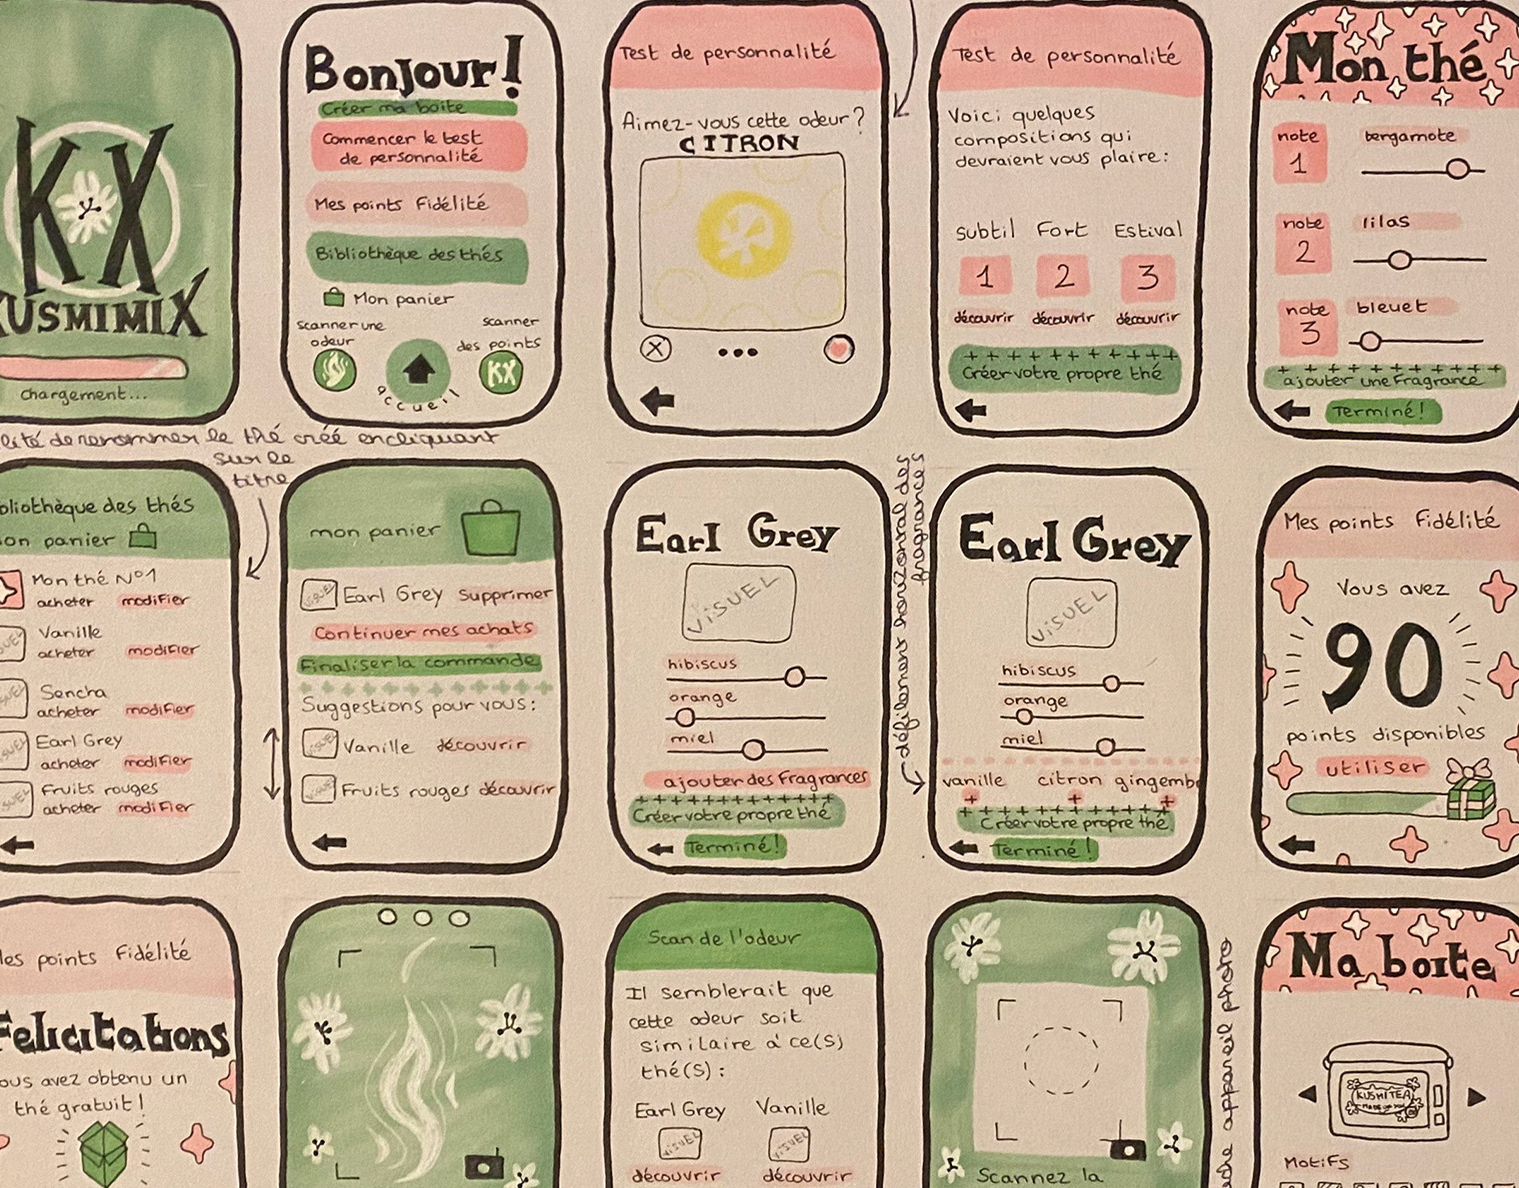 KX
KUSMIMIX
chargement...
Bonjour!
Créer ma boite
Commencer le test
de personnalité
Mes points Fidélité
Bibliothèque des thés
Mon panier
scanner une
odeur
scanner
des points
KX
accueil
Test de personnalité
Aimez-vous cette odeur?
CITRON
Test de personnalité
Voici quelques
compositions qui
devraient vous plaire:
Subtil Fort Estival
1 2 3
découvrir découvrir découvrir
+ + + + + + + + + +
Créer votre propre thé
Mon thé
note
1
bergamote
note
2
lilas
note
3
bleuet
+ + + + + + + + + +
ajouter une Fragrance
Terminé!
lité de renommer le thé créé en cliquant
sur le
titre
bliothèque des thés
on panier
Mon thé N°1
acheter modifier
Vanille
acheter modifier
Sencha
acheter modifier
Earl Grey
acheter modifier
Fruits rouges
acheter modifier
mon panier
VISUEL Earl Grey supprimer
Continuer mes achats
Finaliser la commande
Suggestions pour vous:
VISUEL Vanille découvrir
VISUEL Fruits rouges découvrir
Earl Grey
VISUEL
hibiscus
orange
miel
ajouter des Fragrances
+ + + + + + + + + + + +
Créer votre propre thé
Terminé!
défilement horizontal des
fragrances
Earl Grey
VISUEL
hibiscus
orange
miel
vanille citron gingembr
+ + +
Créer votre propre thé
Terminé!
Mes points Fidélité
Vous avez
90
points disponibles
utiliser
es points Fidélité
Felicitations
ous avez obtenu un
thé gratuit!
Scan de l'odeur
Il semblerait que
cette odeur soit
similaire à ce(s)
thé(s):
Earl Grey Vanille
VISUEL VISUEL
découvrir découvrir
Scannez la
appareil photo
Ma boite
KUSMITEA
Motifs